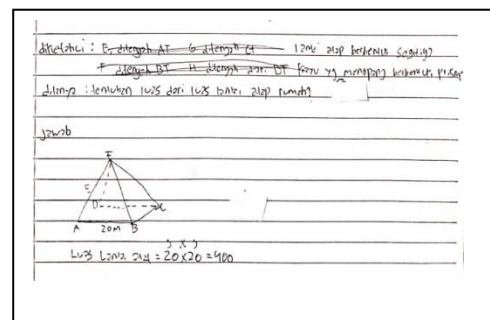 diketahui : E ditengah AT G ditengah CT lantai atap berbentuk segitiga
F ditengah BT H ditengah dari DT kayu yg menopang berbentuk
ditanya : tentukan luas dari luas lantai atap rumah?
jawab
T
E
D
C
A 20M B
s x s
Luas Lantai atap = 20 x 20 = 400